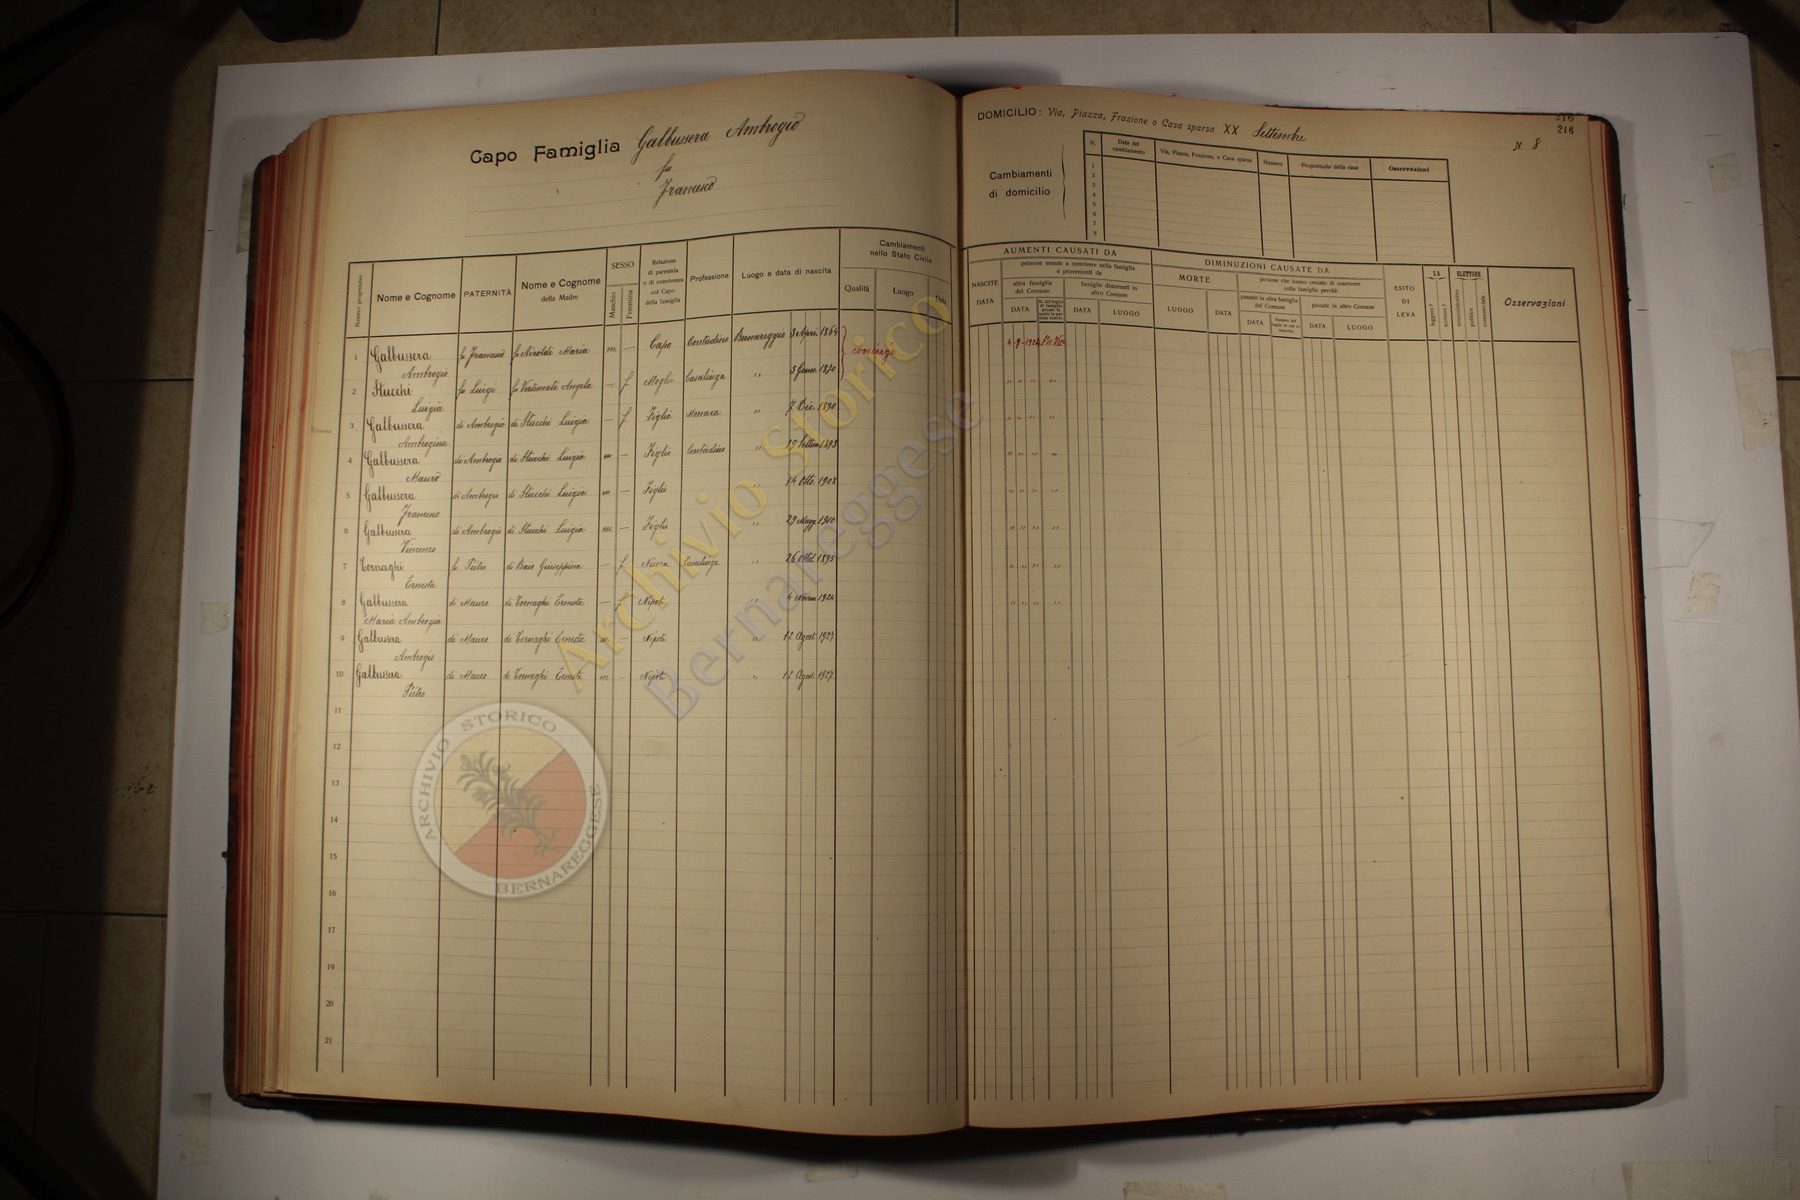 Capo Famiglia Galbussera Ambrogio
fu
Francesco
Numero progressivo
Nome e Cognome
PATERNITÀ
Nome e Cognome
della Madre
SESSO
Maschio
Femmina
Relazione
di parentela
o di convivenza
col Capo
della famiglia
Professione
Luogo e data di nascita
Cambiamenti
nello Stato Civile
Qualità
Luogo
Data
1 Galbussera Ambrogio fu Francesco fu Airoldi Maria m. — Capo Contadino Bernareggio 3 April. 1864 coniugi
2 Stucchi Luigia fu Luigi fu Vertemati Angela — f Moglie Casalinga " 5 Genn. 1870
3 Galbussera Ambrogina di Ambrogio di Stucchi Luigia — f Figlia Monaca " 7 Dic. 1890
4 Galbussera Mauro di Ambrogio di Stucchi Luigia m — Figlio Contadino " 19 Settem 1893
5 Galbussera Francesco di Ambrogio di Stucchi Luigia m — Figlio " 14 Otto. 1908
6 Galbussera Vincenzo di Ambrogio di Stucchi Luigia m. — Figlio " 29 Magg. 1910
7 Tornaghi Ernesta fu Pietro di Baio Giuseppina — f Nuora Casalinga " 26 Otto. 1895
8 Galbussera Maria Ambrogia di Mauro di Tornaghi Ernesta — f Nipote " 4 Novem 1924
9 Galbussera Ambrogio di Mauro di Tornaghi Ernesta m. — Nipote " 12 Agost. 1927
10 Galbussera Pietro di Mauro di Tornaghi Ernesta m — Nipote " 12 Agost. 1927
11
12
13
14
15
16
17
19
20
21
216
216
DOMICILIO: Via, Piazza, Frazione o Casa sparsa XX Settembre
N. 8
Cambiamenti
di domicilio
N.
Data del
cambiamento
Via, Piazza, Frazione, o Casa sparsa
Numero
Proprietario della casa
Osservazioni
1
2
3
4
5
6
7
8
AUMENTI CAUSATI DA
NASCITE
DATA
persone venute a convivere nella famiglia
e provenienti da
altra famiglia
del Comune
DATA
famiglie dimoranti in
altro Comune
DATA
LUOGO
DIMINUZIONI CAUSATE DA
MORTE
LUOGO
DATA
persone che hanno cessato di convivere
colla famiglia perchè
passate in altra famiglia
del Comune
DATA
passate in altro Comune
DATA
LUOGO
ESITO
DI
LEVA
SA
leggere?
scrivere?
ELETTORE
amministrativo
politico
commerciale
Osservazioni
Archivio Storico
Bernareggese
ARCHIVIO STORICO
BERNAREGGESE